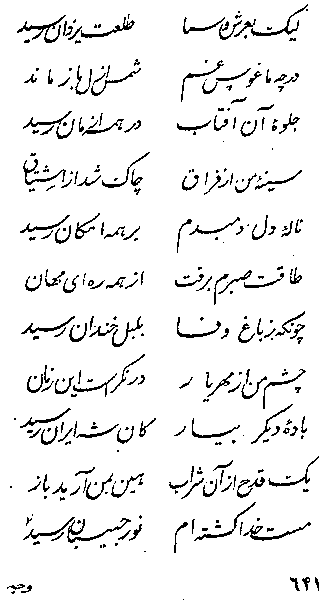 لیک بعرش سما طلعت یزدان رسید
در چه ماغوس غم شمس ازل باز ماند
جلوهٔ آن آفتاب در همه ازمان رسید
سینهٔ من از فراق چاک شد از اشتیاق
نالهٔ دل دمبدم بر همه امکان رسید
طاقت صبرم برفت از همه ره ای مهان
چونکه ز باغ وفا بلبل خندان رسید
چشم من از مهر یار در نگر است این زمان
بادهٔ دیگر بیار کان شه ایران رسید
یک قدح از آن شراب هین بمن آرید باز
مست خدا گشته ام نور حبیبان رسید
۶۴۱
وحید